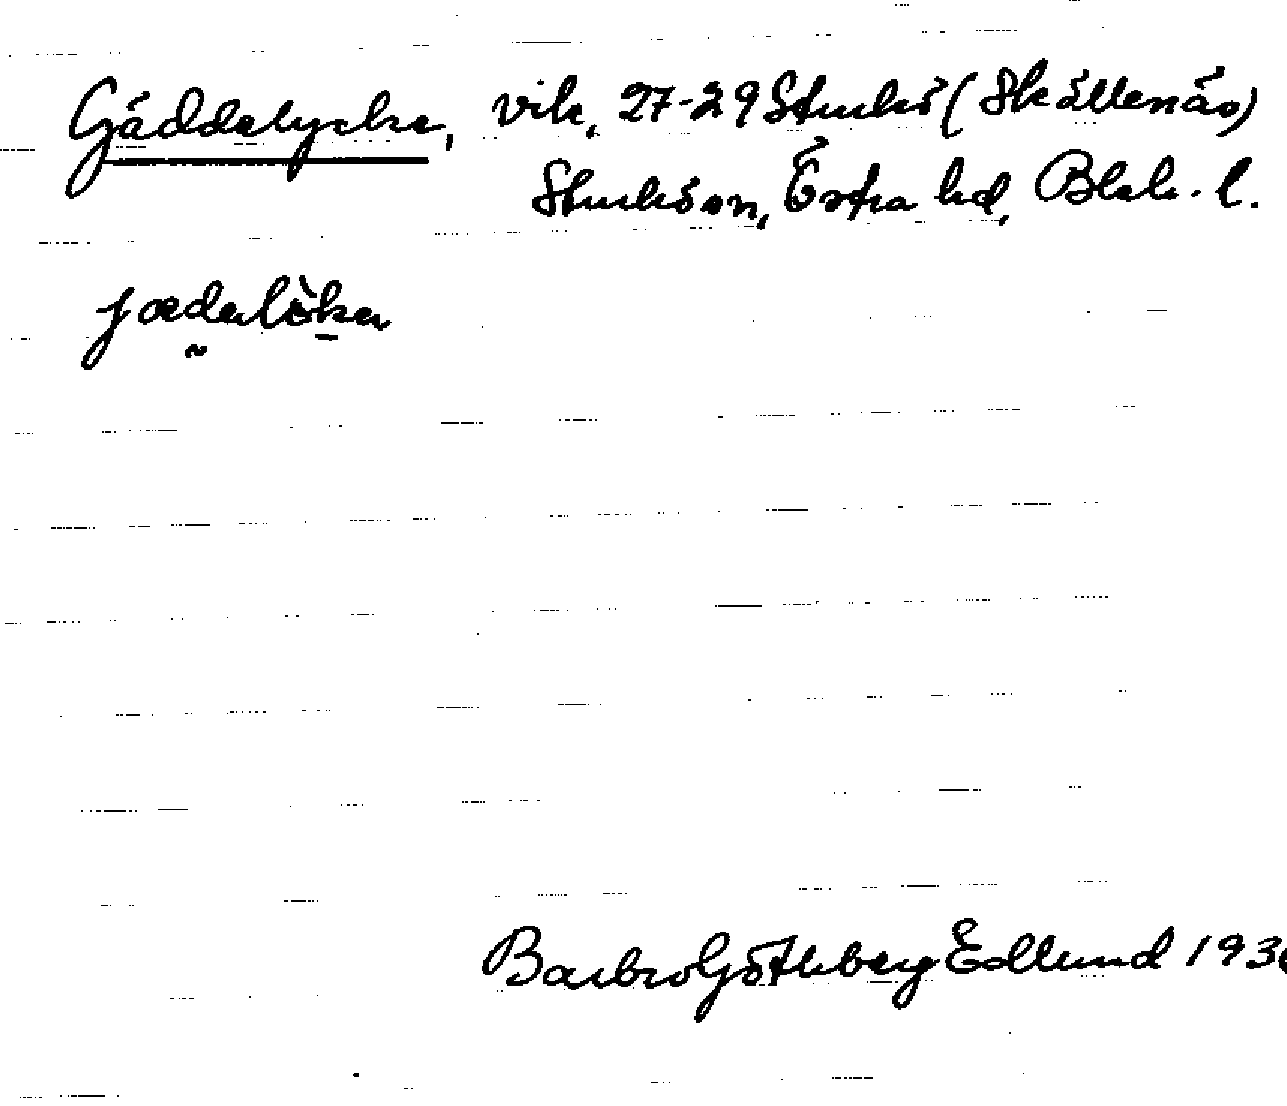 Gäddelycke, vik, 27-29 Sturkö (Skällenäs)
Sturkö sn, Östra hd, Blek. l.
jædelökə
Barbro Götheberg Edlund 193